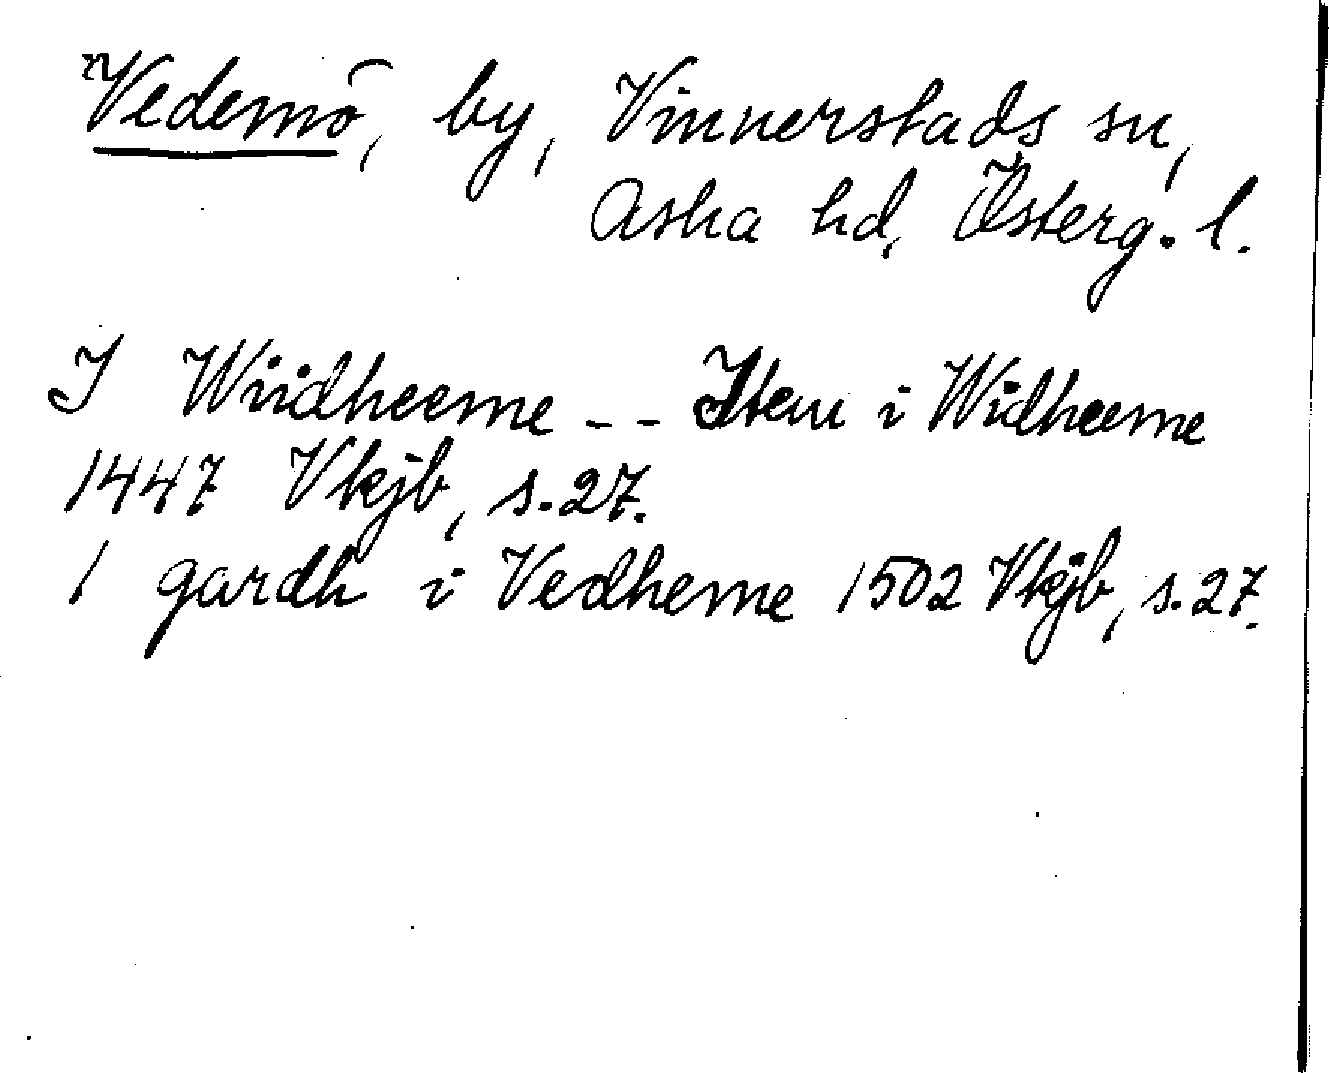 Vedemö, by, Vinnerstads sn,
Aska hd, Österg. l.
I Wiidheeme -- Item i Widheeme
1447 Vkjb, s. 27.
1 gardh i Vedheme 1502 Vkjb, s. 27.